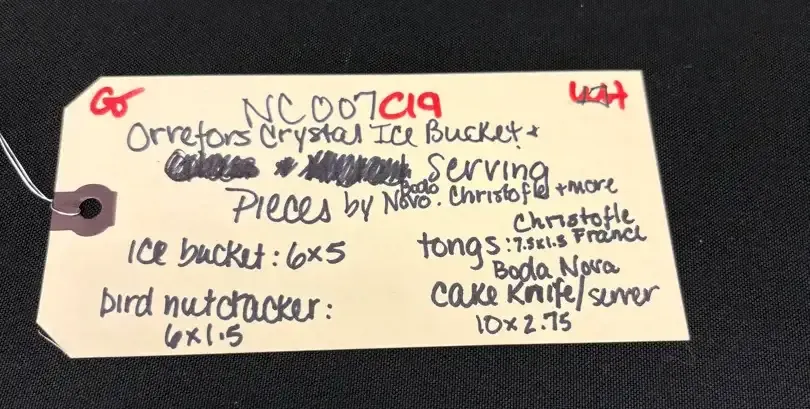 NC007 C19
Orrefors Crystal Ice Bucket +
Serving
Pieces by Boda Novo. Christofle + more
Ice bucket: 6x5
bird nutcracker:
6x1.5
Christofle
tongs: 7.5x1.5 France
Boda Nova
Cake Knife/server
10x2.75